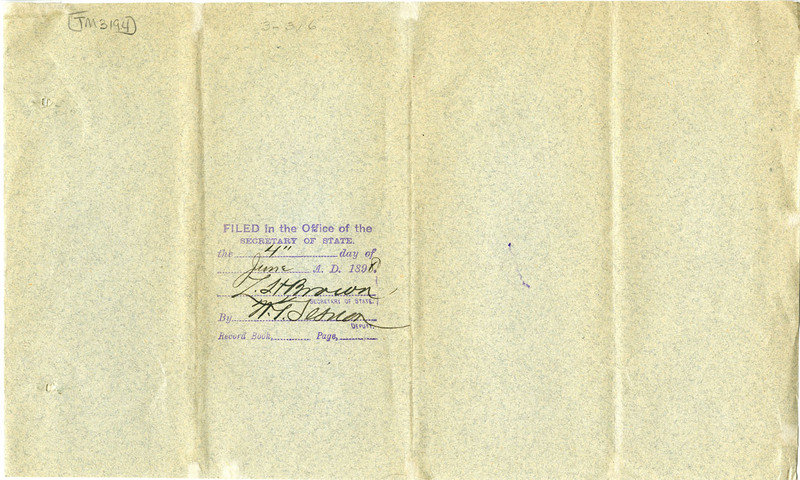 JM3194
3-3/6
FILED in the Office of the
SECRETARY OF STATE,
the 4" day of
June A. D. 1898
L. H. Brown
SECRETARY OF STATE.
By
DEPUTY.
Record Book, Page,